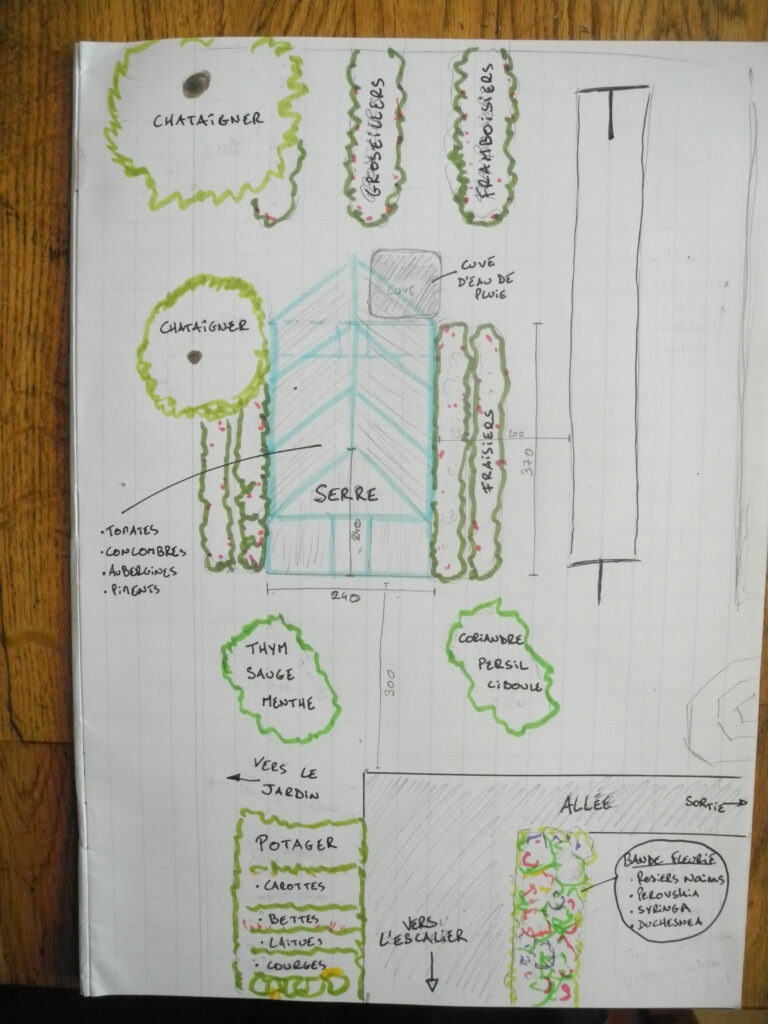 CHATAÎGNER
GROSEILLERS
FRAMBOISIERS
CUVE
D'EAU DE
PLUIE
CUVE
CHATAÎGNER
FRAISIERS
200
370
SERRE
240
240
• TOMATES
• CONCOMBRES
• AUBERGINES
• PIMENTS
THYM
SAUGE
MENTHE
CORIANDRE
PERSIL
CIBOULE
300
VERS LE
JARDIN
ALLÉE
SORTIE
POTAGER
• CAROTTES
• BETTES
• LAITUES
• COURGES
VERS
L'ESCALIER
BANDE FLEURIE
• ROSIERS NAINS
• PEROVSKIA
• SYRINGA
• DUCHESNEA